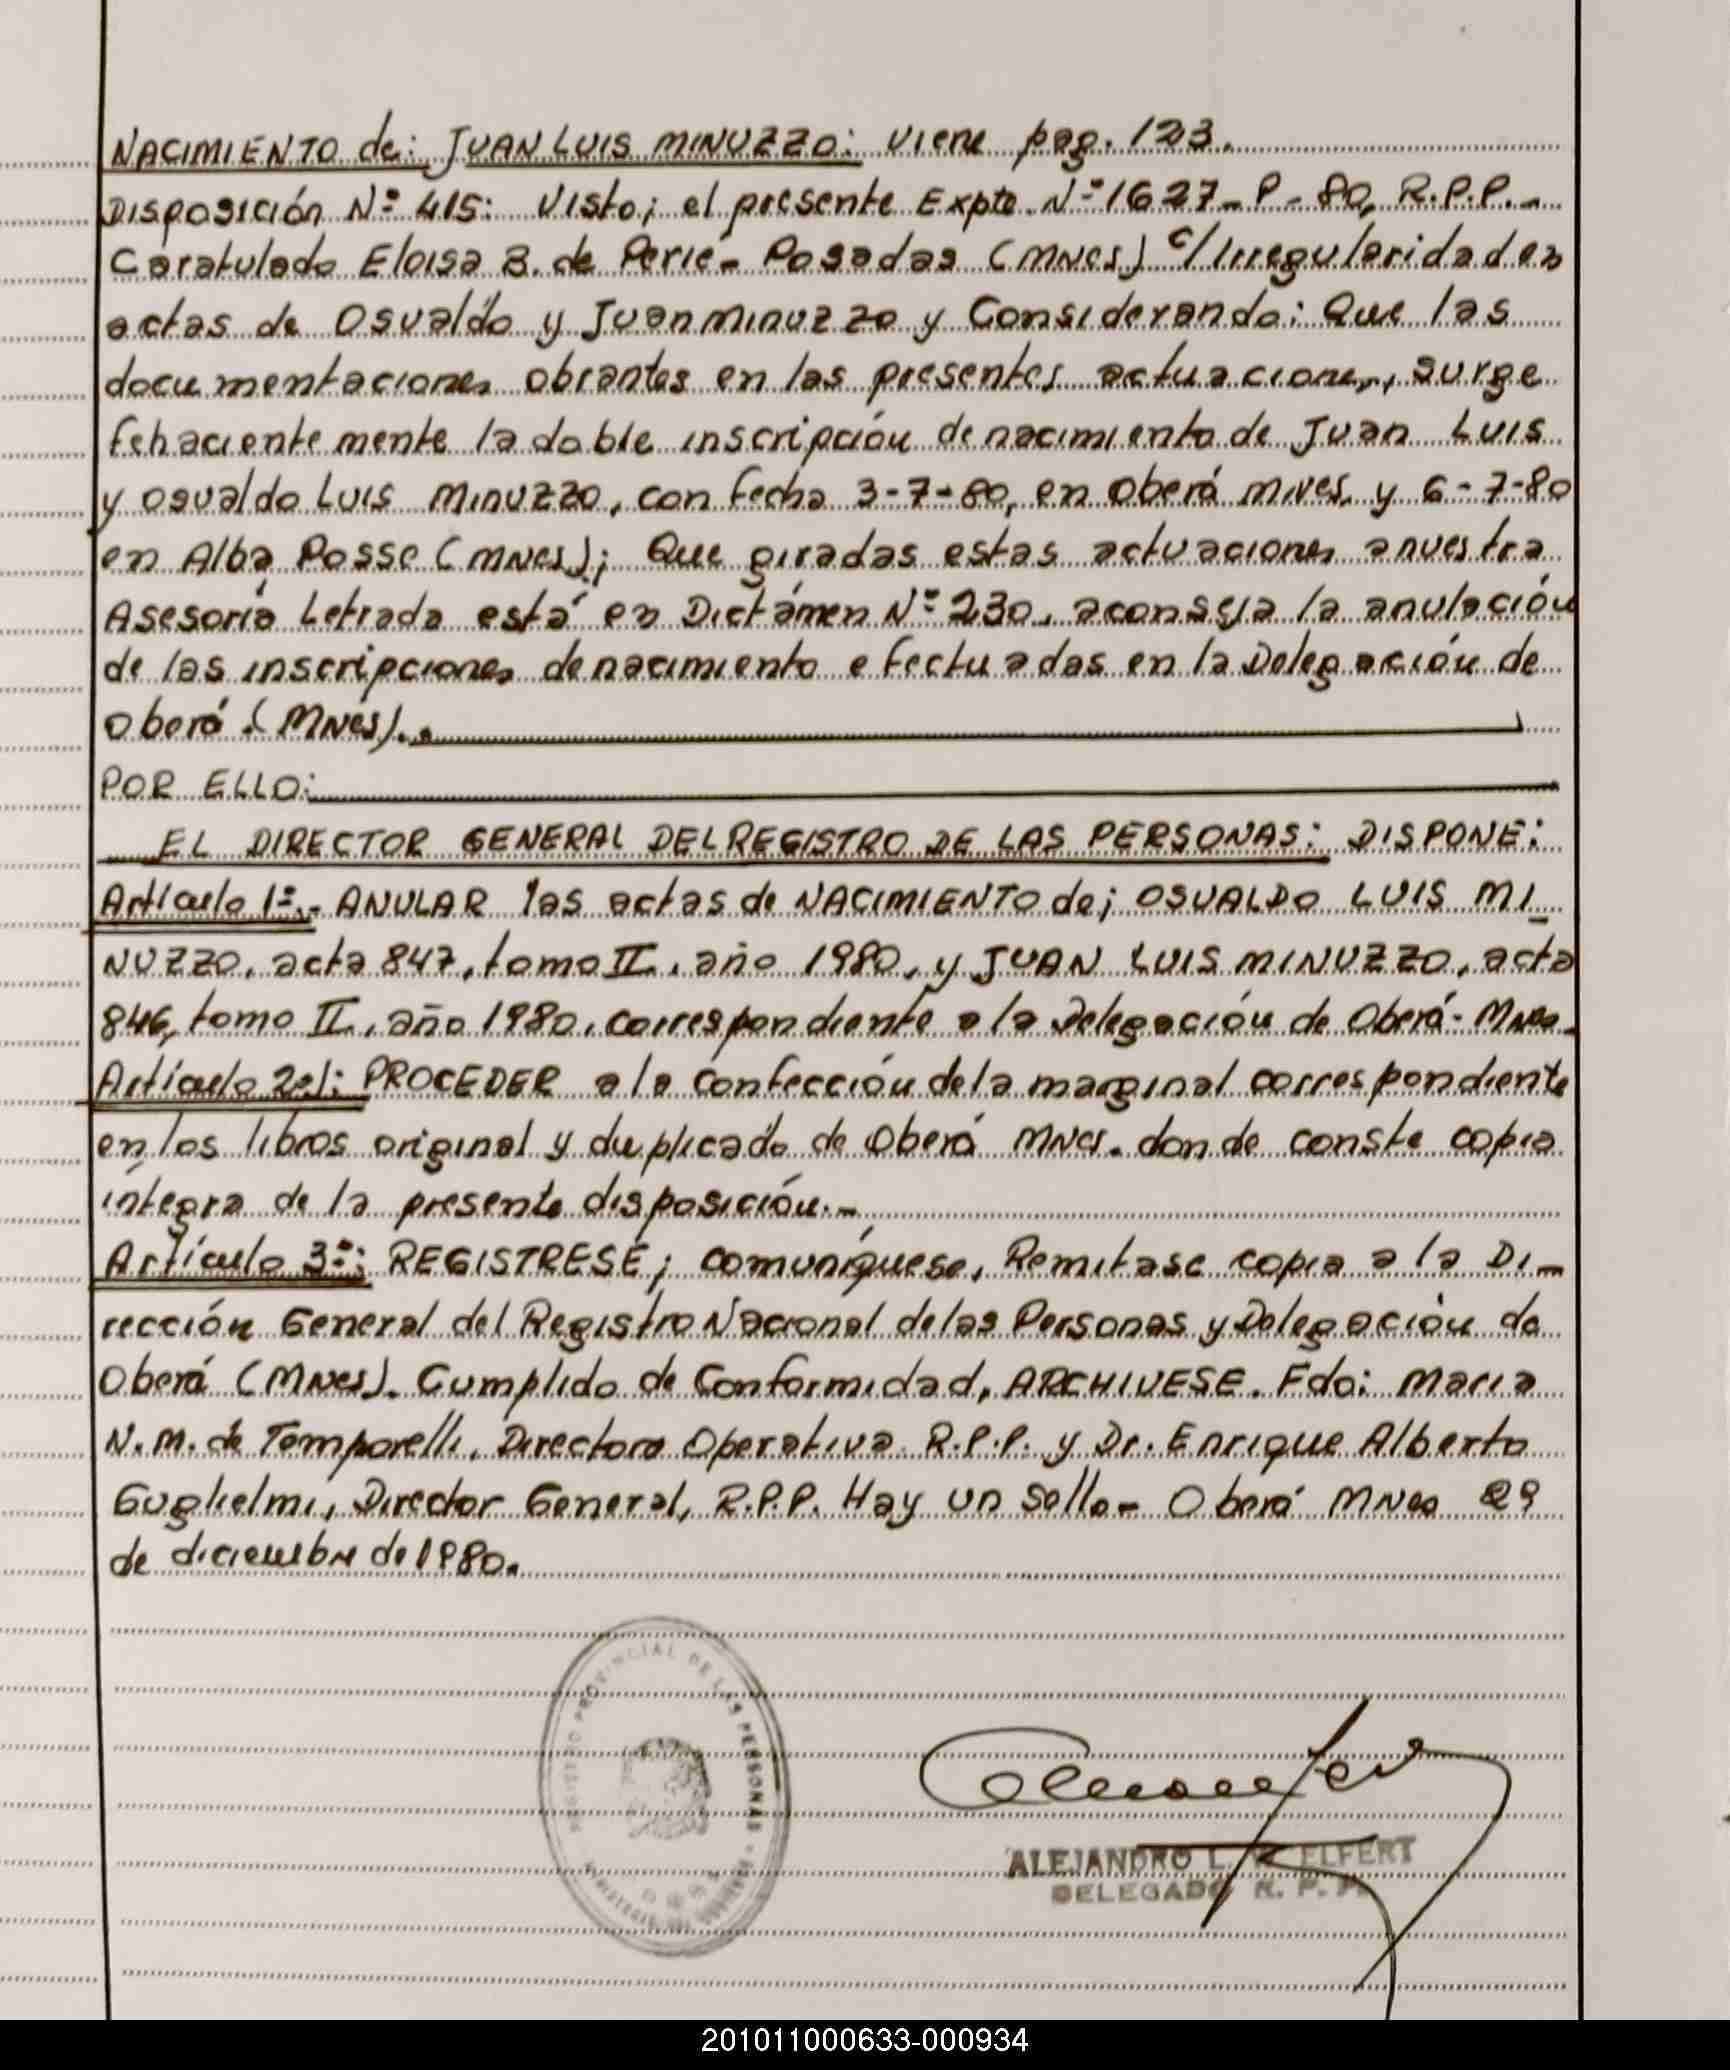 NACIMIENTO de: JUAN LUIS MINUZZO: viene pag. 123.
Disposición Nº 415: Visto; el presente Expte. Nº 1627-P-80, R.P.P.-
Caratulado Eloisa B. de Perié- Posadas (MNes) c/Irregularidad en
actas de Osvaldo y Juan Minuzzo y Considerando: Que las
documentaciones obrantes en las presentes actuaciones, surge
fehacientemente la doble inscripción de nacimiento de Juan Luis
y Osvaldo Luis Minuzzo, con fecha 3-7-80, en Oberá Mnes. y 6-7-80
en Alba Posse (MNes); Que giradas estas actuaciones a nuestra
Asesoría Letrada está en Dictámen Nº 230, aconseja la anulación
de las inscripciones de nacimiento efectuadas en la Delegación de
Oberá (MNes)..
POR ELLO:
EL DIRECTOR GENERAL DEL REGISTRO DE LAS PERSONAS: DISPONE:
Artículo 1º.- ANULAR las actas de NACIMIENTO de; OSVALDO LUIS MI-
NUZZO, acta 847, tomo II, año 1980, y JUAN LUIS MINUZZO, acta
846, tomo II, año 1980, correspondiente a la Delegación de Oberá- Mnes.
Artículo 2º: PROCEDER a la confección de la marginal correspondiente
en los libros original y duplicado de Oberá MNes. donde conste copia
íntegra de la presente disposición.-
Artículo 3º: REGISTRESE; comuníquese, Remitase copia a la Di-
rección General del Registro Nacional de las Personas y Delegación de
Oberá (MNes). Cumplido de Conformidad, ARCHIVESE. Fdo: Maria
N.M. de Temporelli, Directora Operativa R.P.P. y Dr. Enrique Alberto
Guglielmi, Director General, R.P.P. Hay un sello- Oberá MNes 29
de diciembre de 1980.
REGISTRO PROVINCIAL DE LAS PERSONAS
ALEJANDRO L. ELFERT
DELEGADO R. P. P.
201011000633-000934